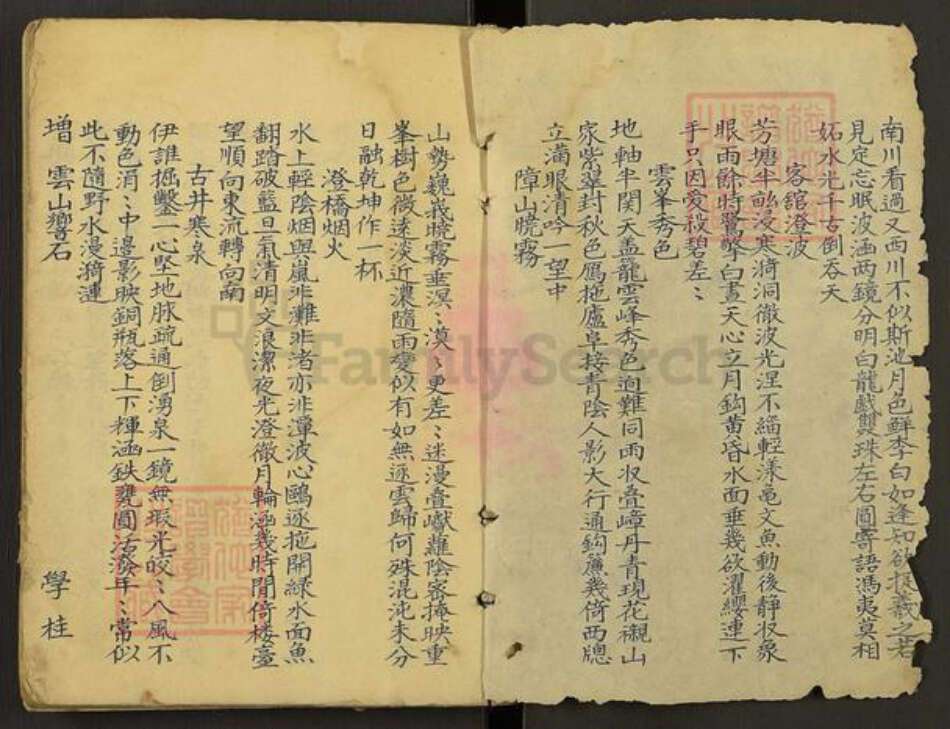 南川看過又西川不似斯池月色鮮李白如逢知欲捉羲之若
見定忘眠波涵两鏡分明白龍戲雙珠左右圓寄語馮夷莫相
妬水光千古倒吞天
客舘澄波
芳塘半畝浸寒漪洞徹波光涅不緇輕漾亀文魚動後静收象
眼雨餘時驚擎白晝天心立月鈎黄昏水面垂幾欲濯纓連下
手只因愛殺碧差〻
雲峯秀色
地軸半関天盖籠雲峰秀色逈難同雨収疊嶂丹青現花襯山
家紫翠封秋色鴈拖廬阜接青陰人影大行通鈎簾幾倚西牕
立滿眼清吟一望中
障山曉霧
山勢巍峩曉霧垂溟〻漠〻更差〻迷漫疊巘蘿陰密掩映重
峯樹色微遠淡近濃隨雨變似有如無逐雲歸何殊混沌未分
日融乾坤作一杯
澄橋烟火
水上輕陰烟與嵐非灘非渚亦非潭波心鷗逐拖開緑水面魚
翻踏破藍旦氣清明文浪潔夜光澄徹月輪涵幾時閒倚楼臺
望順向東流轉向南
古井寒泉
伊誰掘鑿一心堅地脉疏通倒湧泉一鏡無瑕光皎〻八風不
動色涓〻中邊影映銅瓶落上下種涵鉄甕圓活潑年〻常似
此不隨野水漫漪漣
增 雲山響石 學桂
FamilySearch